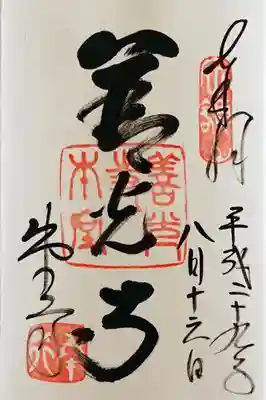 奉拝
平成二十九年
八月十六日
善光寺
善光寺本堂